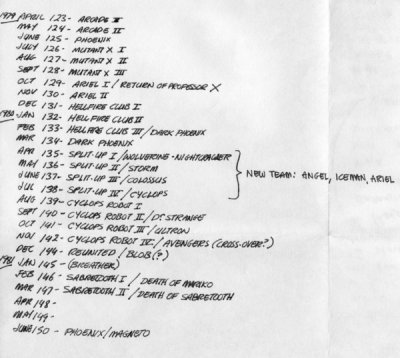 1979 APRIL 123- ARCADE I
MAY 124- ARCADE II
JUNE 125- PHOENIX
JULY 126- MUTANT X I
AUG 127- MUTANT X II
SEPT 128- MUTANT X III
OCT 129- ARIEL I / RETURN OF PROFESSOR X
NOV 130- ARIEL II
DEC 131- HELLFIRE CLUB I
1980 JAN 132- HELLFIRE CLUB II
FEB 133- HELLFIRE CLUB III / DARK PHOENIX
MAR 134- DARK PHOENIX
APR 135- SPLIT-UP I / WOLVERINE-NIGHTCRAWLER
MAY 136- SPLIT-UP II / STORM
JUNE 137- SPLIT-UP III / COLOSSUS
JUL 138- SPLIT-UP IV / CYCLOPS
NEW TEAM: ANGEL, ICEMAN, ARIEL
AUG 139- CYCLOPS ROBOT I
SEPT 140- CYCLOPS ROBOT II / DR. STRANGE
OCT 141- CYCLOPS ROBOT III / ULTRON
NOV 142- CYCLOPS ROBOT IV / AVENGERS (CROSS-OVER?)
DEC 144- REUNITED / BLOB (?)
1981 JAN 145- (BREATHER)
FEB 146- SABRETOOTH I / DEATH OF MARIKO
MAR 147- SABRETOOTH II / DEATH OF SABRETOOTH
APR 148-
MAY 149-
JUNE 150- PHOENIX / MAGNETO